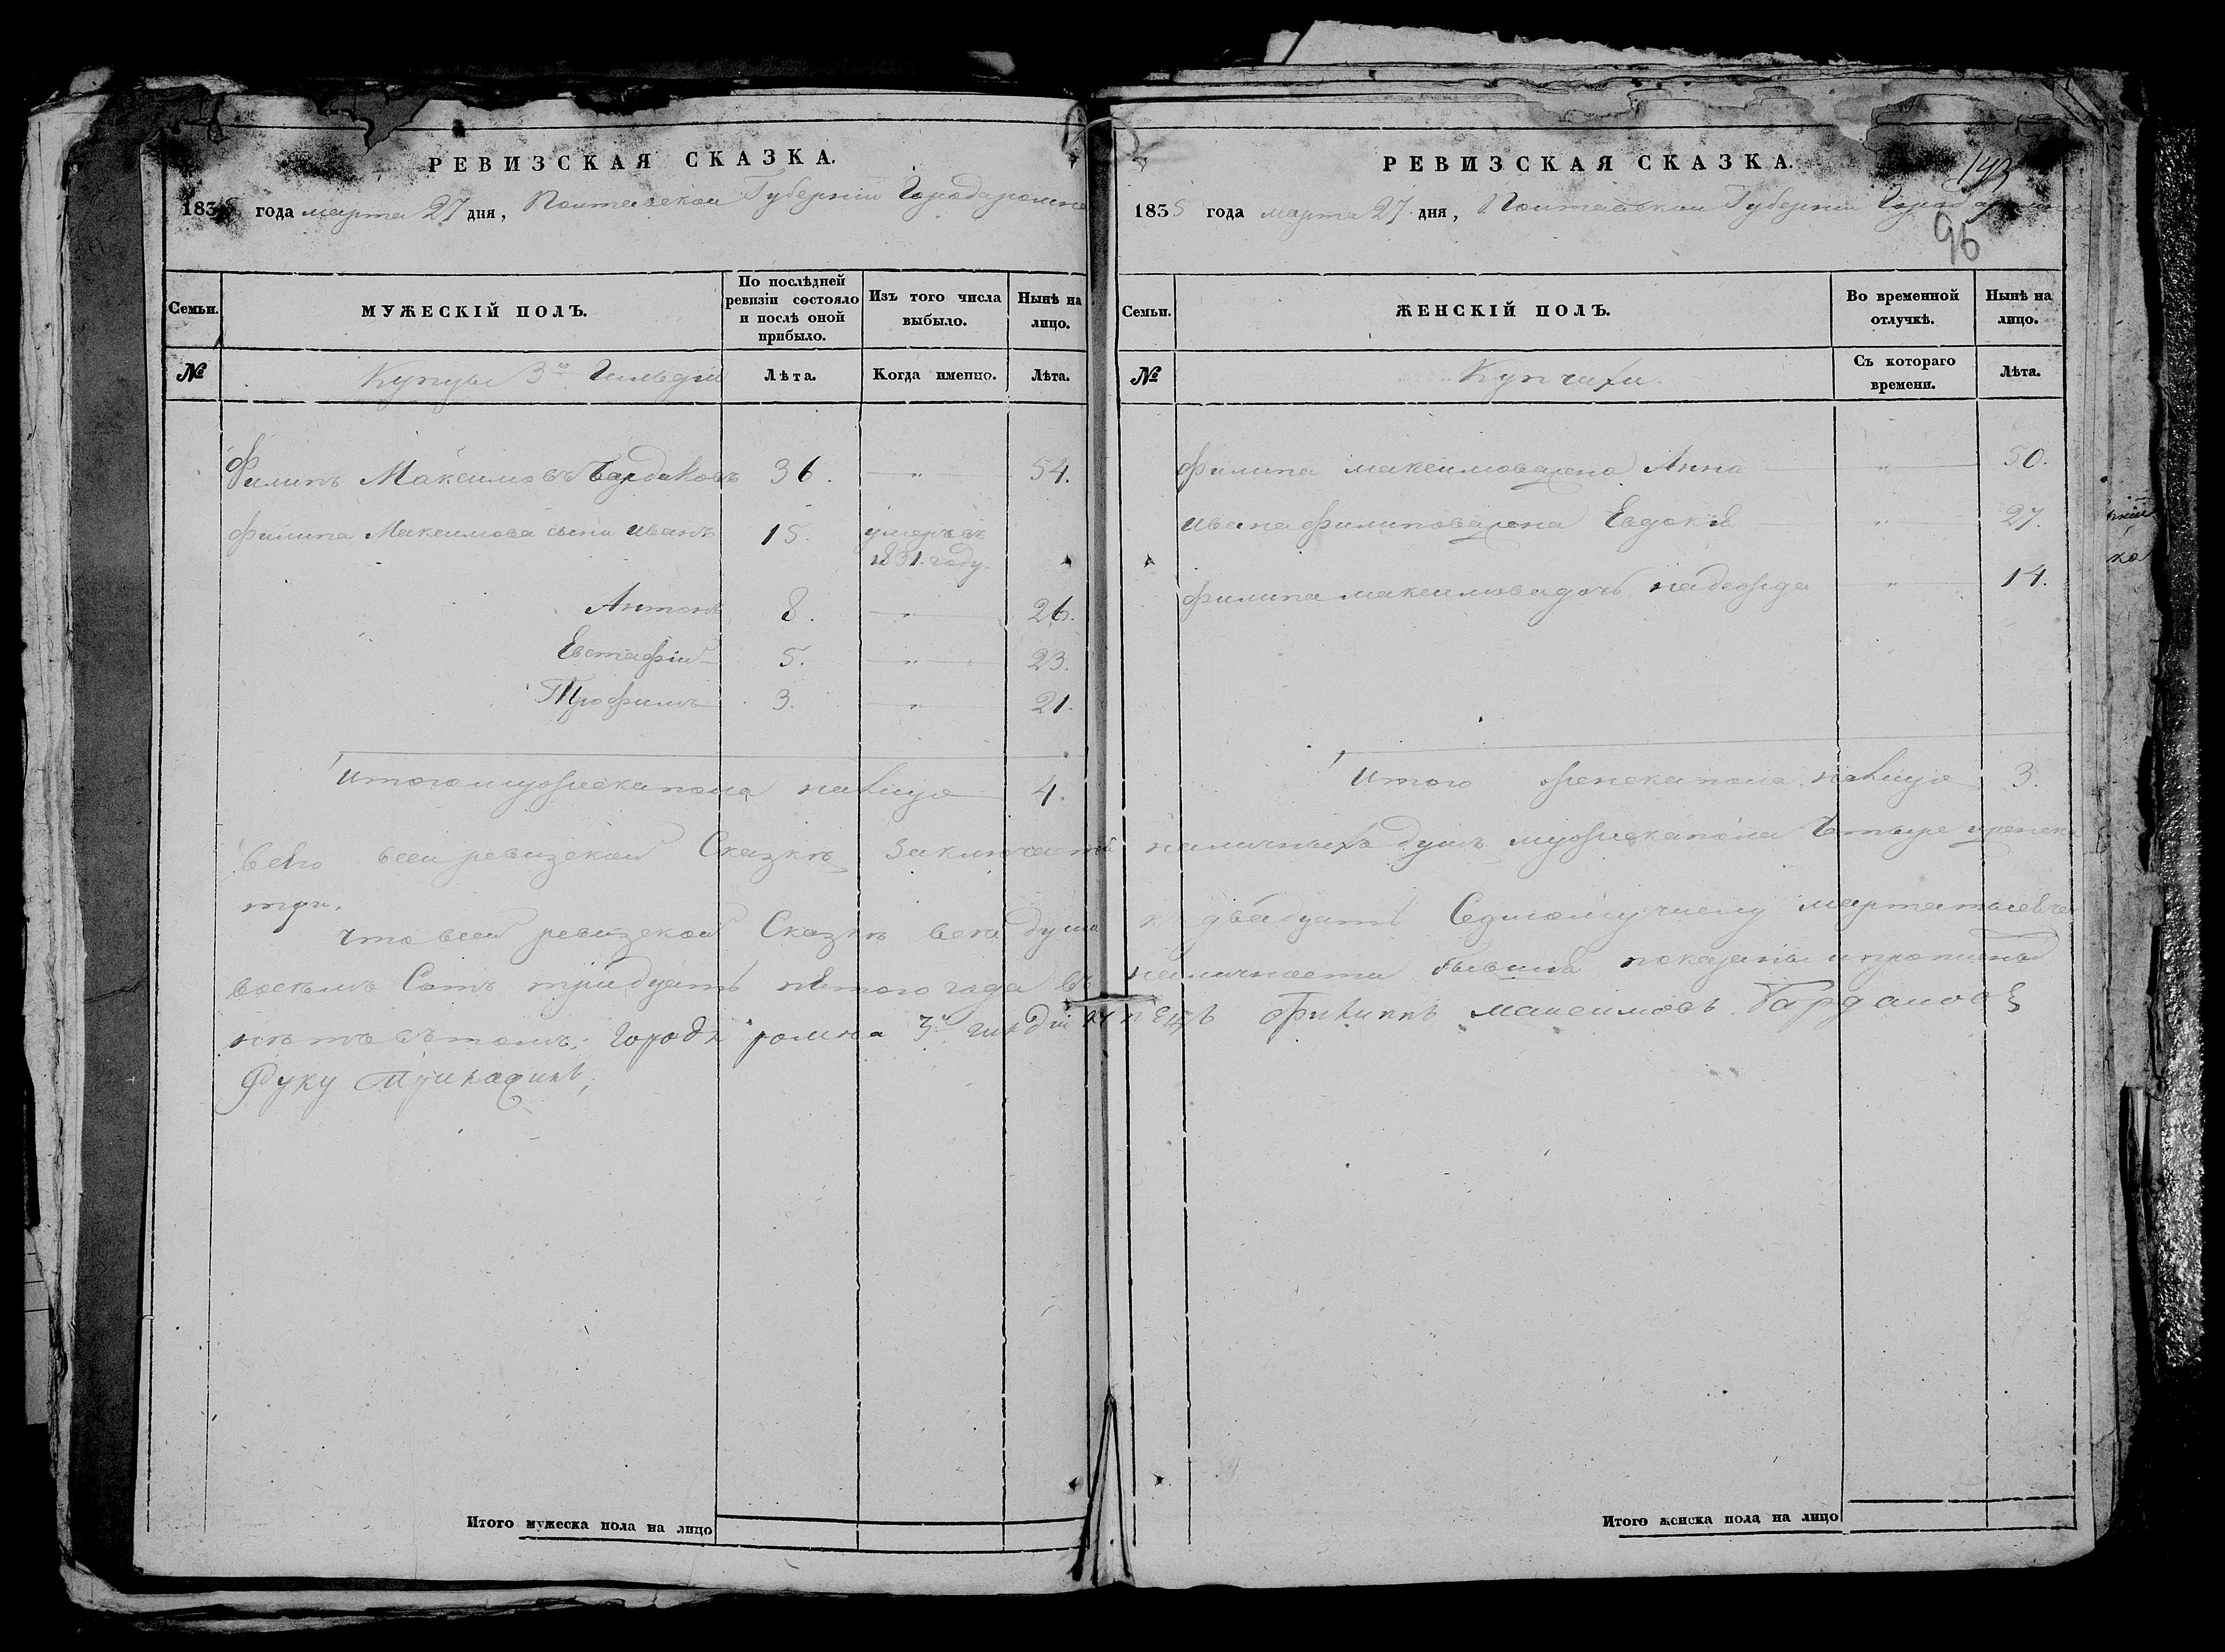 РЕВИЗСКАЯ СКАЗКА.
1835 года марта 27 дня, Полтавской Губернии Города ромна
Семьи.
МУЖЕСКІЙ ПОЛЪ.
По послѣдней ревизіи состояло и послѣ оной прибыло.
Изъ того числа выбыло.
Нынѣ на лицо.
№
Купцы 3й Гильдіи
Лѣта.
Когда именно.
Лѣта.
Филипъ Максимовъ 36. „ 54.
Филипа Максимова сыни Иванъ 15. умеръ въ
1831. году.
Антонъ 8. „ 26.
Евстафій 5. „ 23.
Трофимъ 3. „ 21.
Итого мужеска пола налицо 4.
Всего всей ревизской Сказкѣ Заключается
три.
Что всей ревизской Сказкѣ всѣ души
восемь Сотъ тридцать пятого года въ
города ромна 3й гилдіи
руку приложилъ,
Итого мужеска пола на лицо
РЕВИЗСКАЯ СКАЗКА.
143
1835 года марта 27 дня, Полтавской Губерніи Города ромна
96
Семьи.
ЖЕНСКІЙ ПОЛЪ.
Во временной отлучкѣ.
Нынѣ на лицо.
№
Купчихи.
Съ котораго времени.
Лѣта.
Филипа максимова жена Анна „ 50.
Ивана Филипова жена Евдокія „ 27.
Филипа максимова дочь надежда „ 14.
Итого женска пола налицо 3.
наличныхъ душъ мужеска пола Четыре женска
къ двадцать Седмому числу марта тысеча
наличности бывшія показаны и прописных
купецъ Филиппъ максимовъ
Итого женска пола на лицо